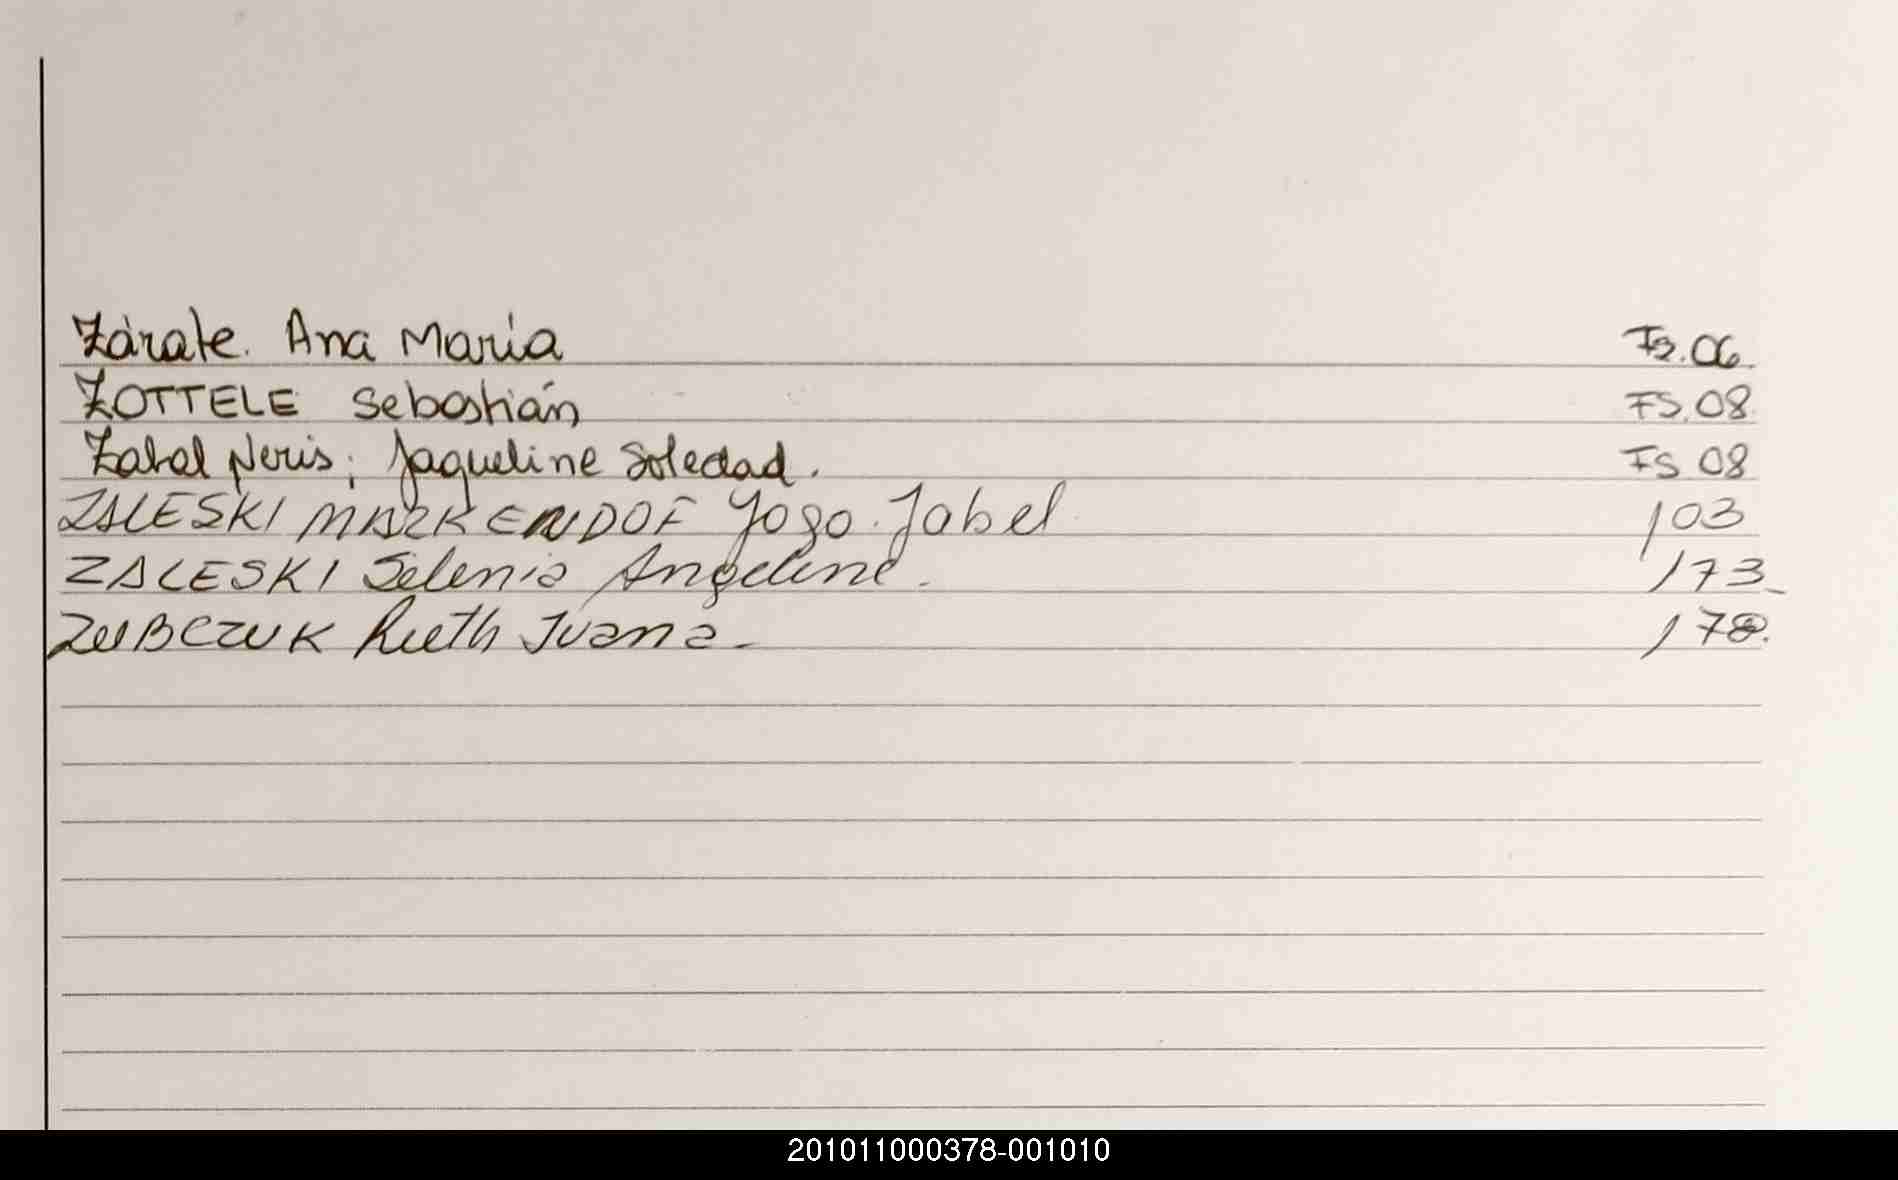 Zárate. Ana María Fs.06.
ZOTTELE Sebastián FS.08.
Zabal Neris; Jaqueline Soledad. FS 08
ZALESKI MARKENDOF Yogo. Jabel 103
ZALESKI Selenia Angeline. 173
ZUBCZUK Ruth Ivana. 178.
201011000378-001010